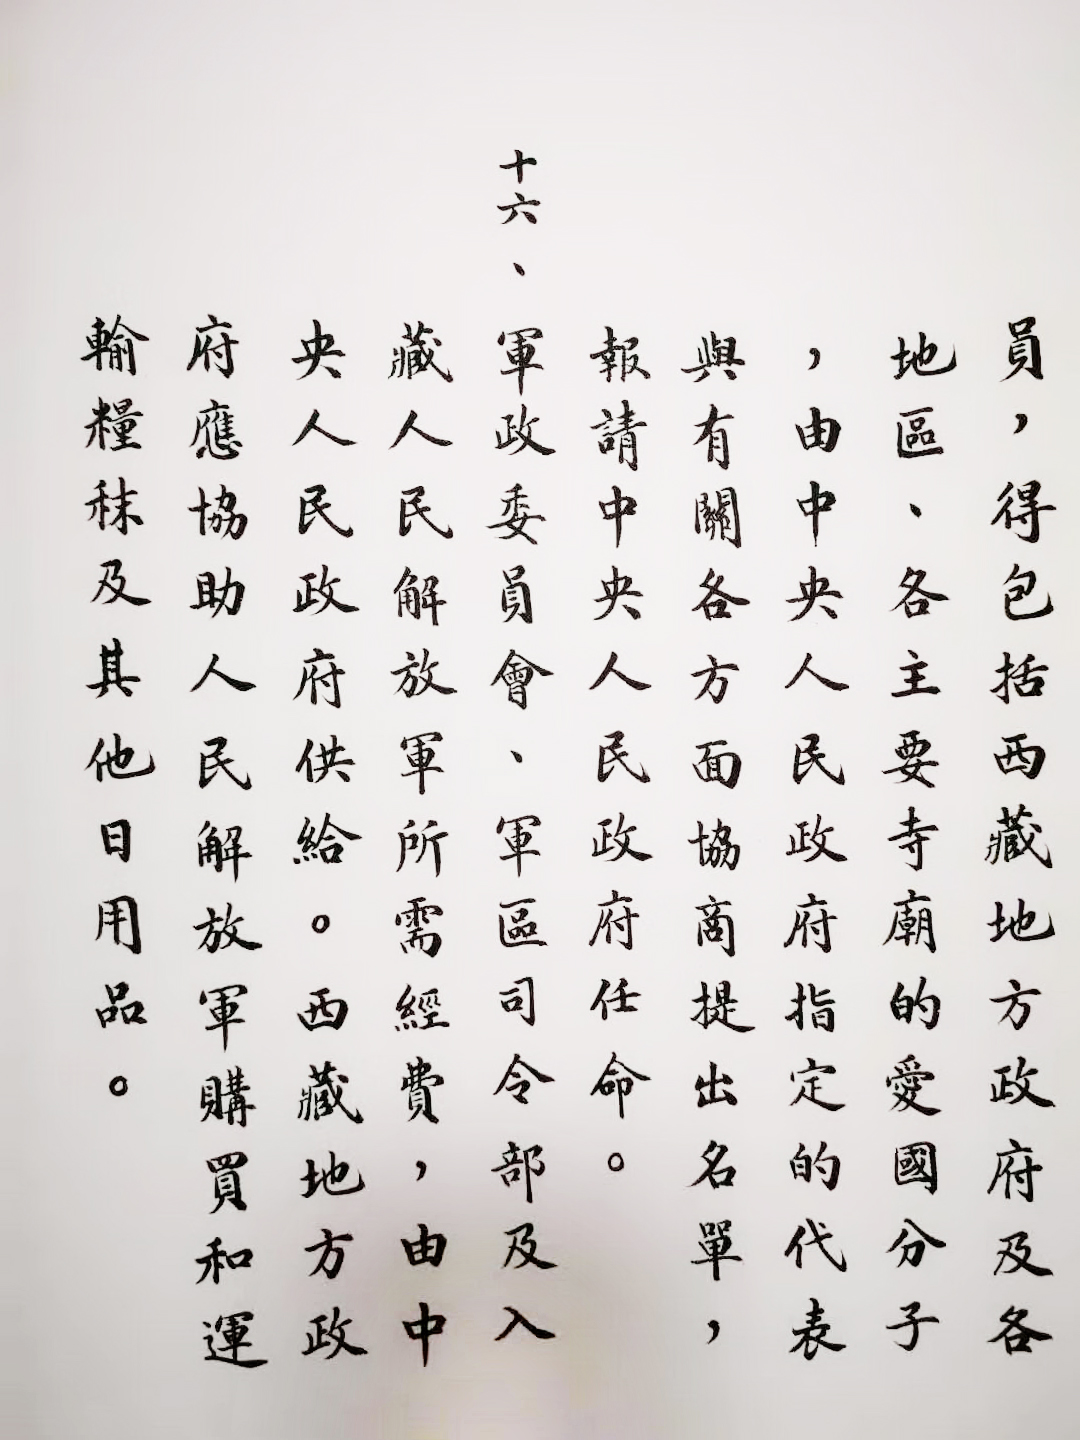 員，得包括西藏地方政府及各
地區、各主要寺廟的愛國分子
，由中央人民政府指定的代表
與有關各方面協商提出名單，
報請中央人民政府任命。
十六、軍政委員會、軍區司令部及入
藏人民解放軍所需經費，由中
央人民政府供給。西藏地方政
府應協助人民解放軍購買和運
輸糧秣及其他日用品。